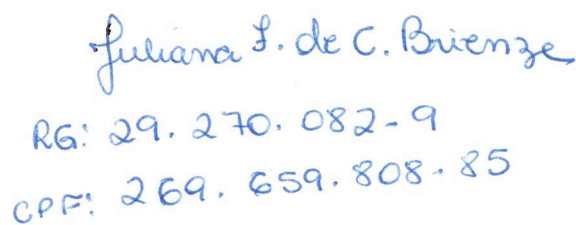 Juliana F. de C. Brienze
RG: 29.270.082-9
CPF: 269.659.808-85